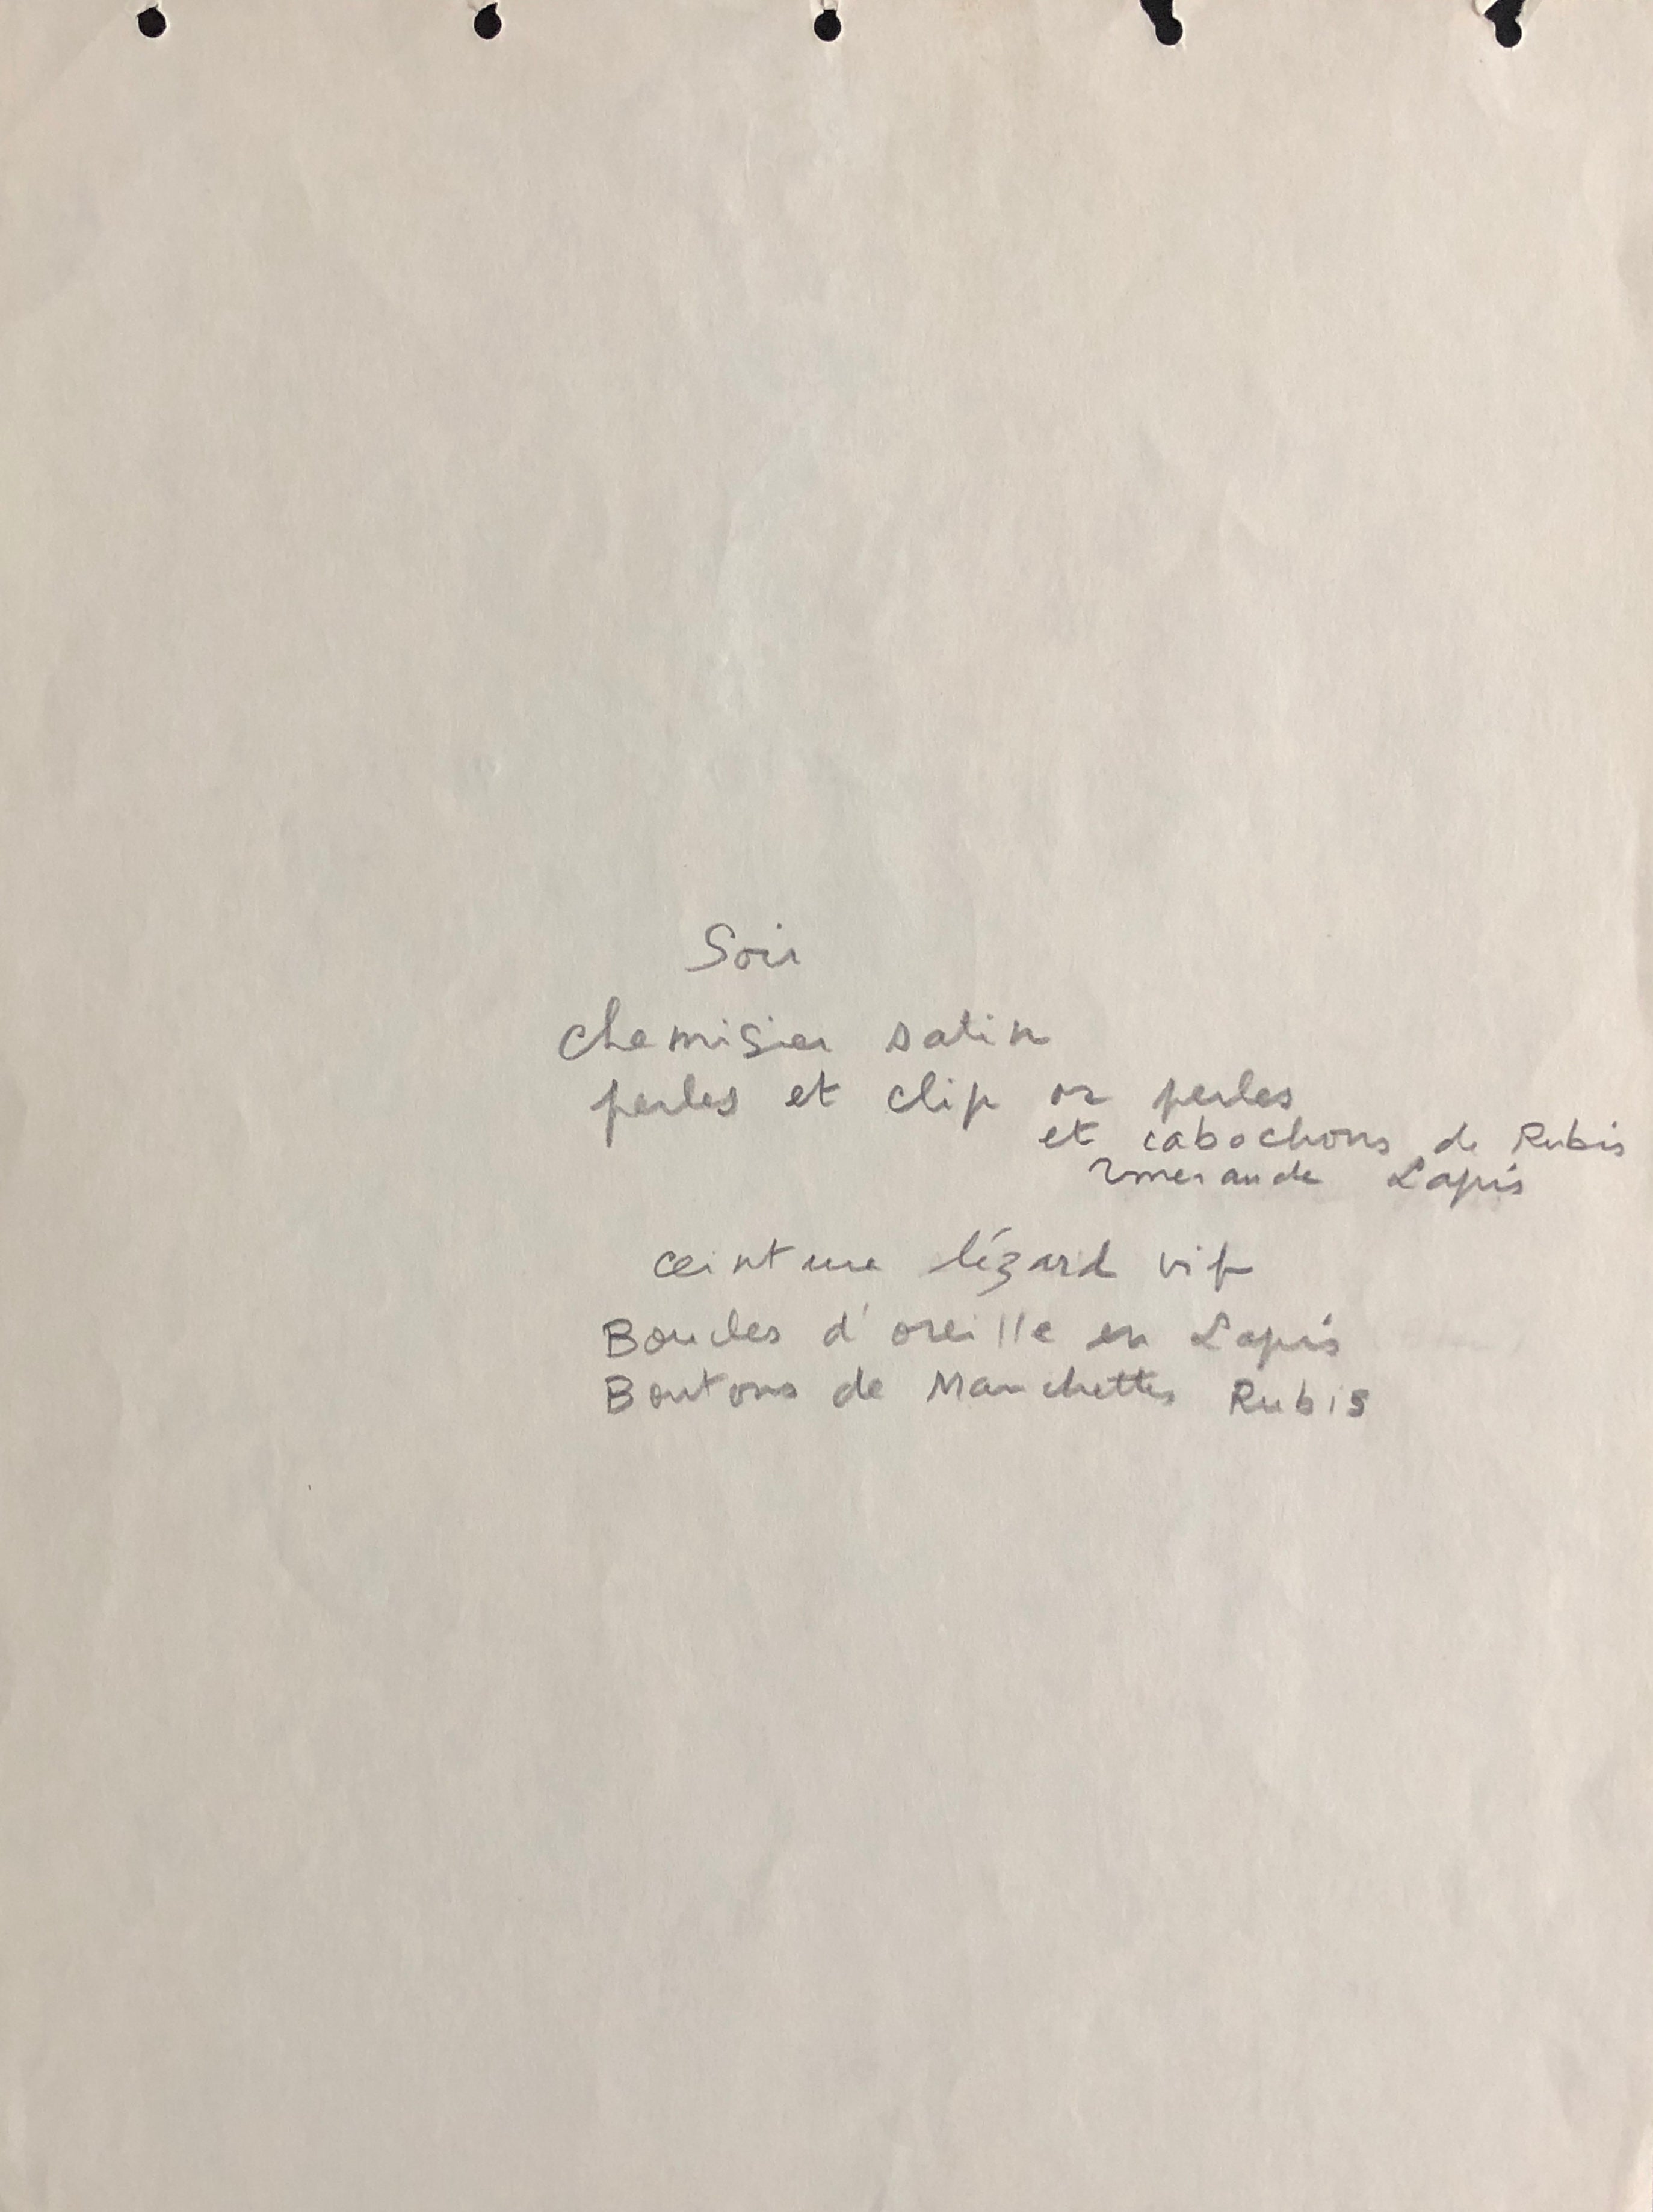 Soir
chemisier satin
perles et clip or perles
et cabochons de Rubis
émeraude Lapis
ceinture lézard vif
Boucles d'oreille en Lapis
Boutons de Manchettes Rubis